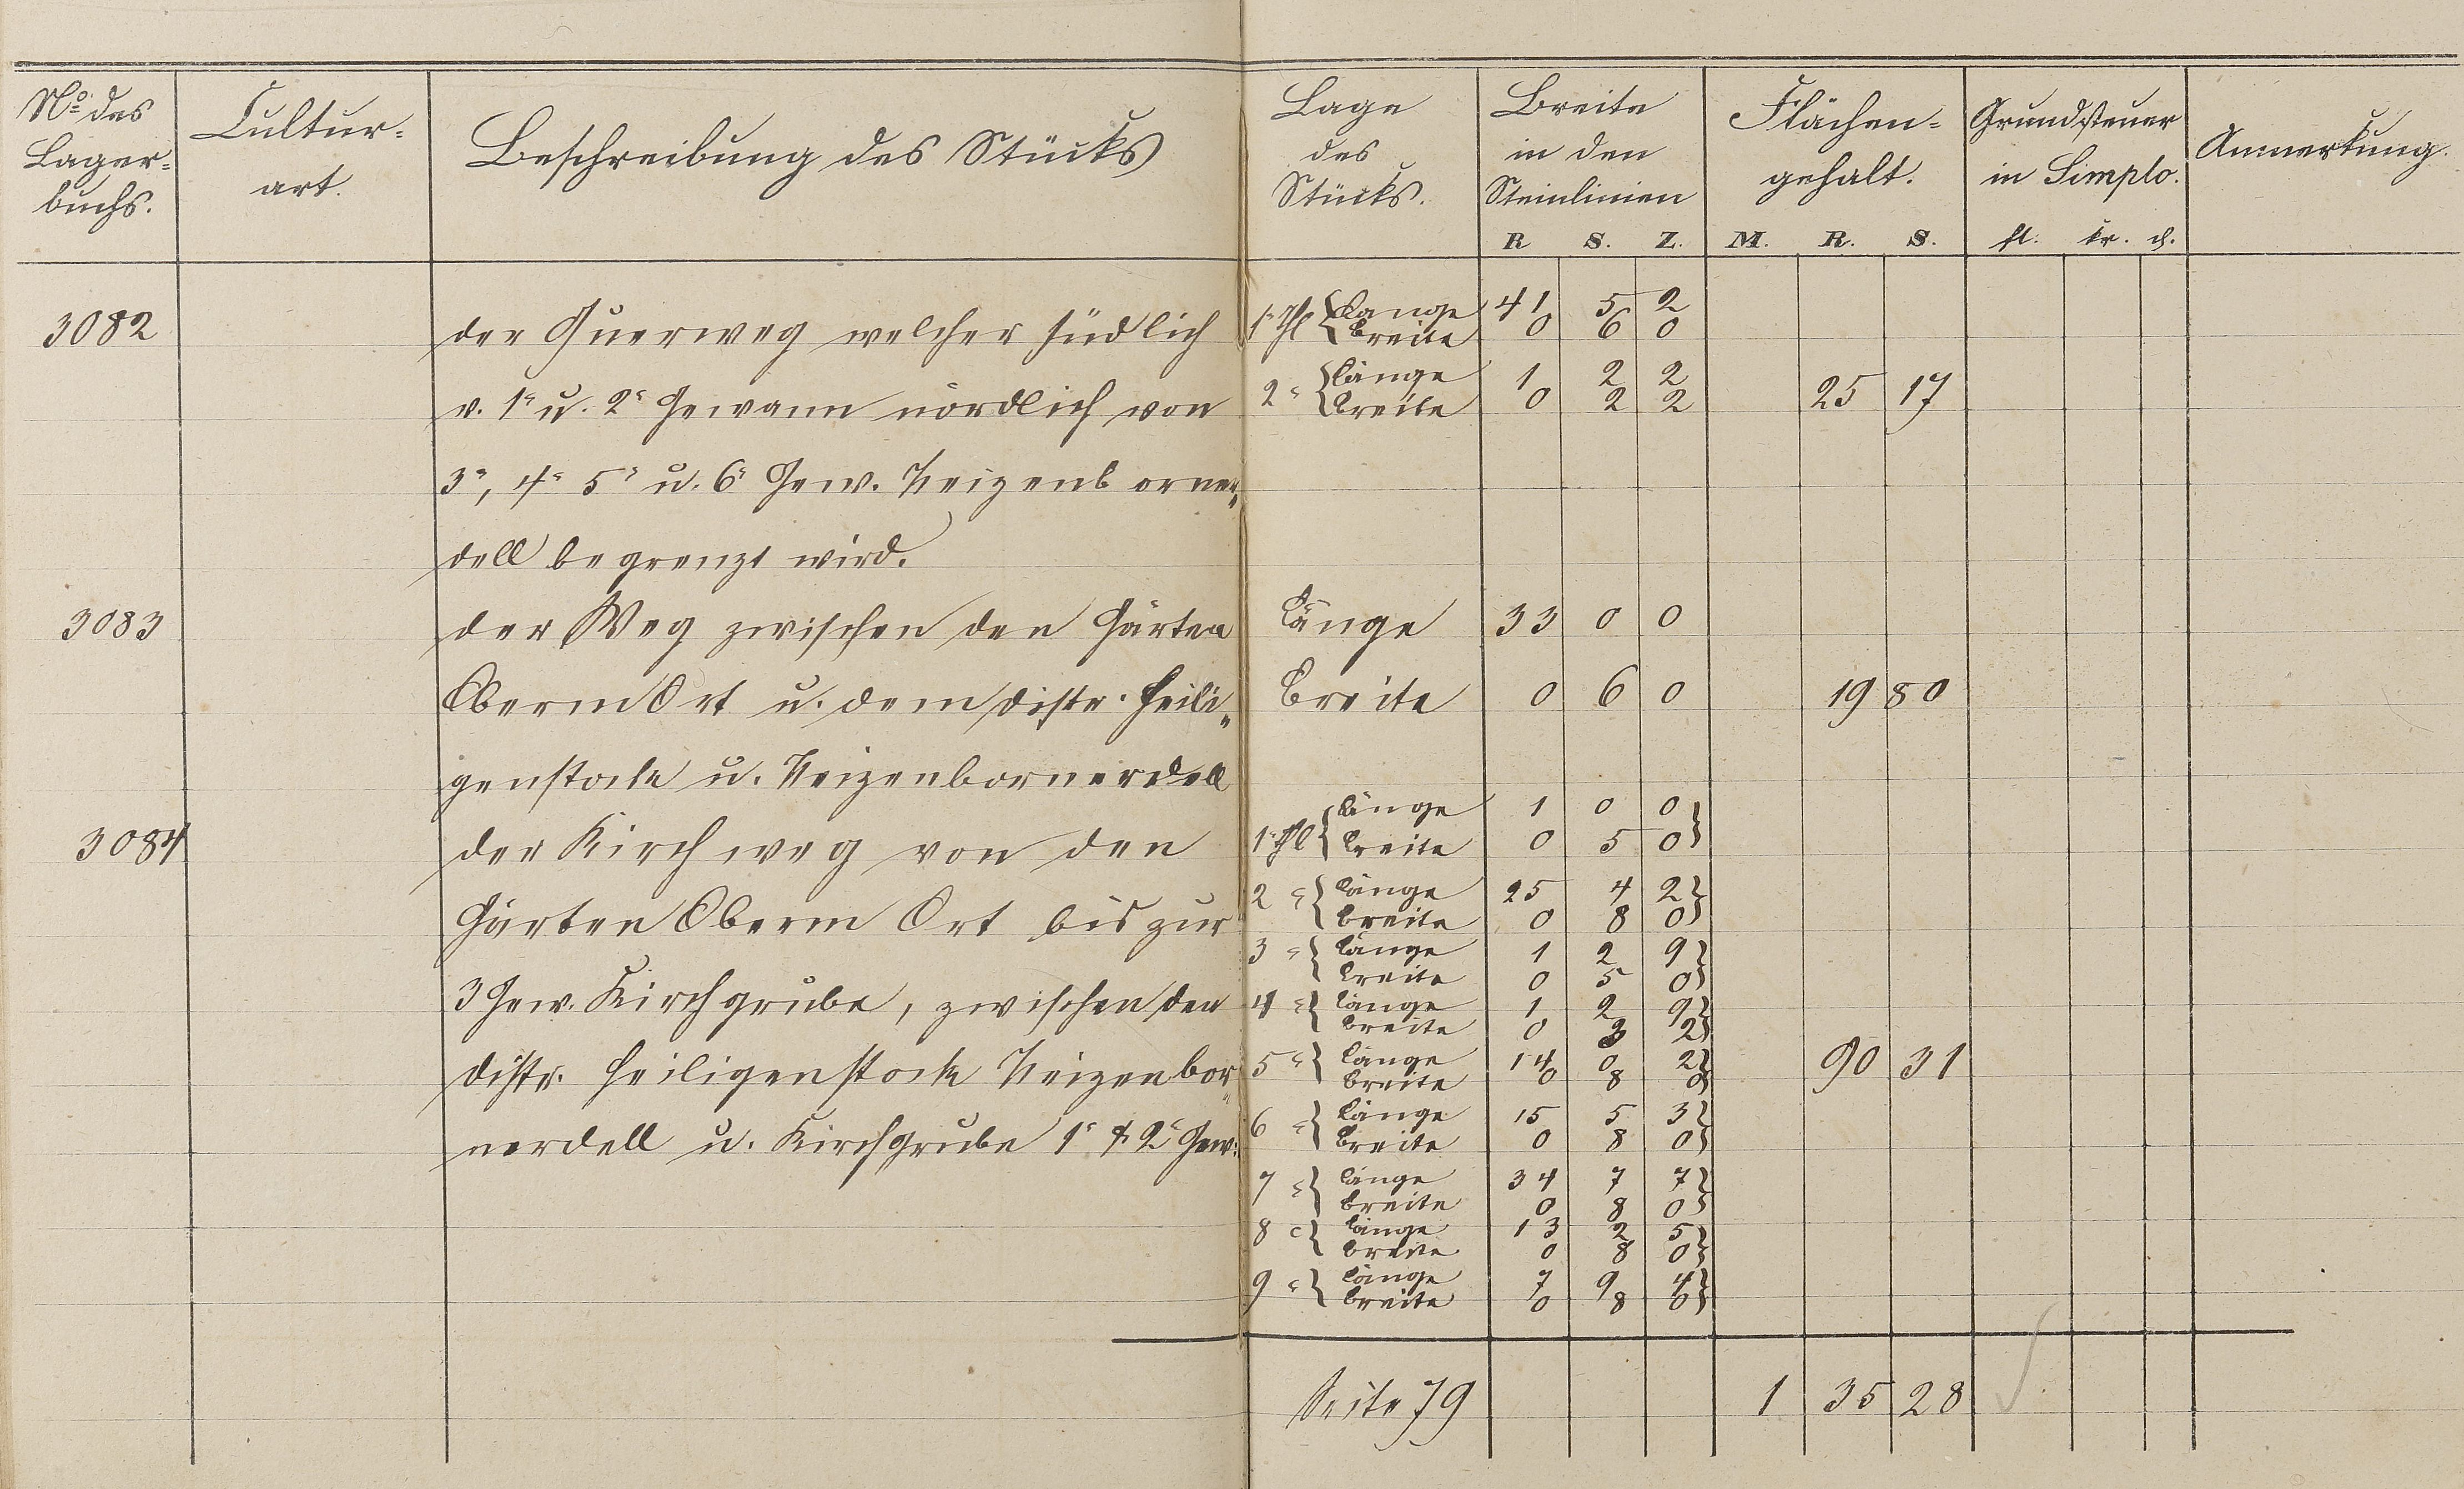 No. des Lager-buchs.
Cultur-art.
Beschreibung des Stücks
Lage des Stücks.
Breite in den Steinlinien
R S. Z.
Flächen-gehalt.
M. R. S.
Grundsteuer in Simplo.
fl. kr. d.
Anmerkung.
3082 der Querweg welcher südlich
1r Thl Länge 41 5 2
Breite 0 6 0
v. 1r u. 2r Gewann nördlich von
2 " Länge 1 2 2
Breite 0 2 2
25 17
3r, 4r 5r u. 6r Gew. Neizenborner„
dell begrenzt wird.
3083 der Weg zwischen den Gärten Länge 33 0 0
Oberm Ort u. dem Distr. Heili„ Breite 0 6 0 19 80
genstock u. Neizenbornerdell
3084 der Kirchweg von den
1r Thl Länge 1 0 0
Breite 0 5 0
Gärten Oberm Ort bis zur
2 " Länge 25 4 2
Breite 0 8 0
3 " Länge 1 2 9
Breite 0 5 0
3 Gew. Kirchgrube, zwischen den
4 " Länge 1 2 9
Breite 0 3 2
Distr. Heiligenstock Neizenbor„
5 " Länge 14 0 2
Breite 0 8 0
90 31
nerdell u. Kirchgrube 1r & 2r Gew:
6 " Länge 15 5 3
Breite 0 8 0
7 " Länge 34 7 7
Breite 0 8 0
8 " Länge 13 2 5
Breite 0 8 0
9 " Länge 7 9 4
Breite 0 8 0
Seite 79 1 35 28